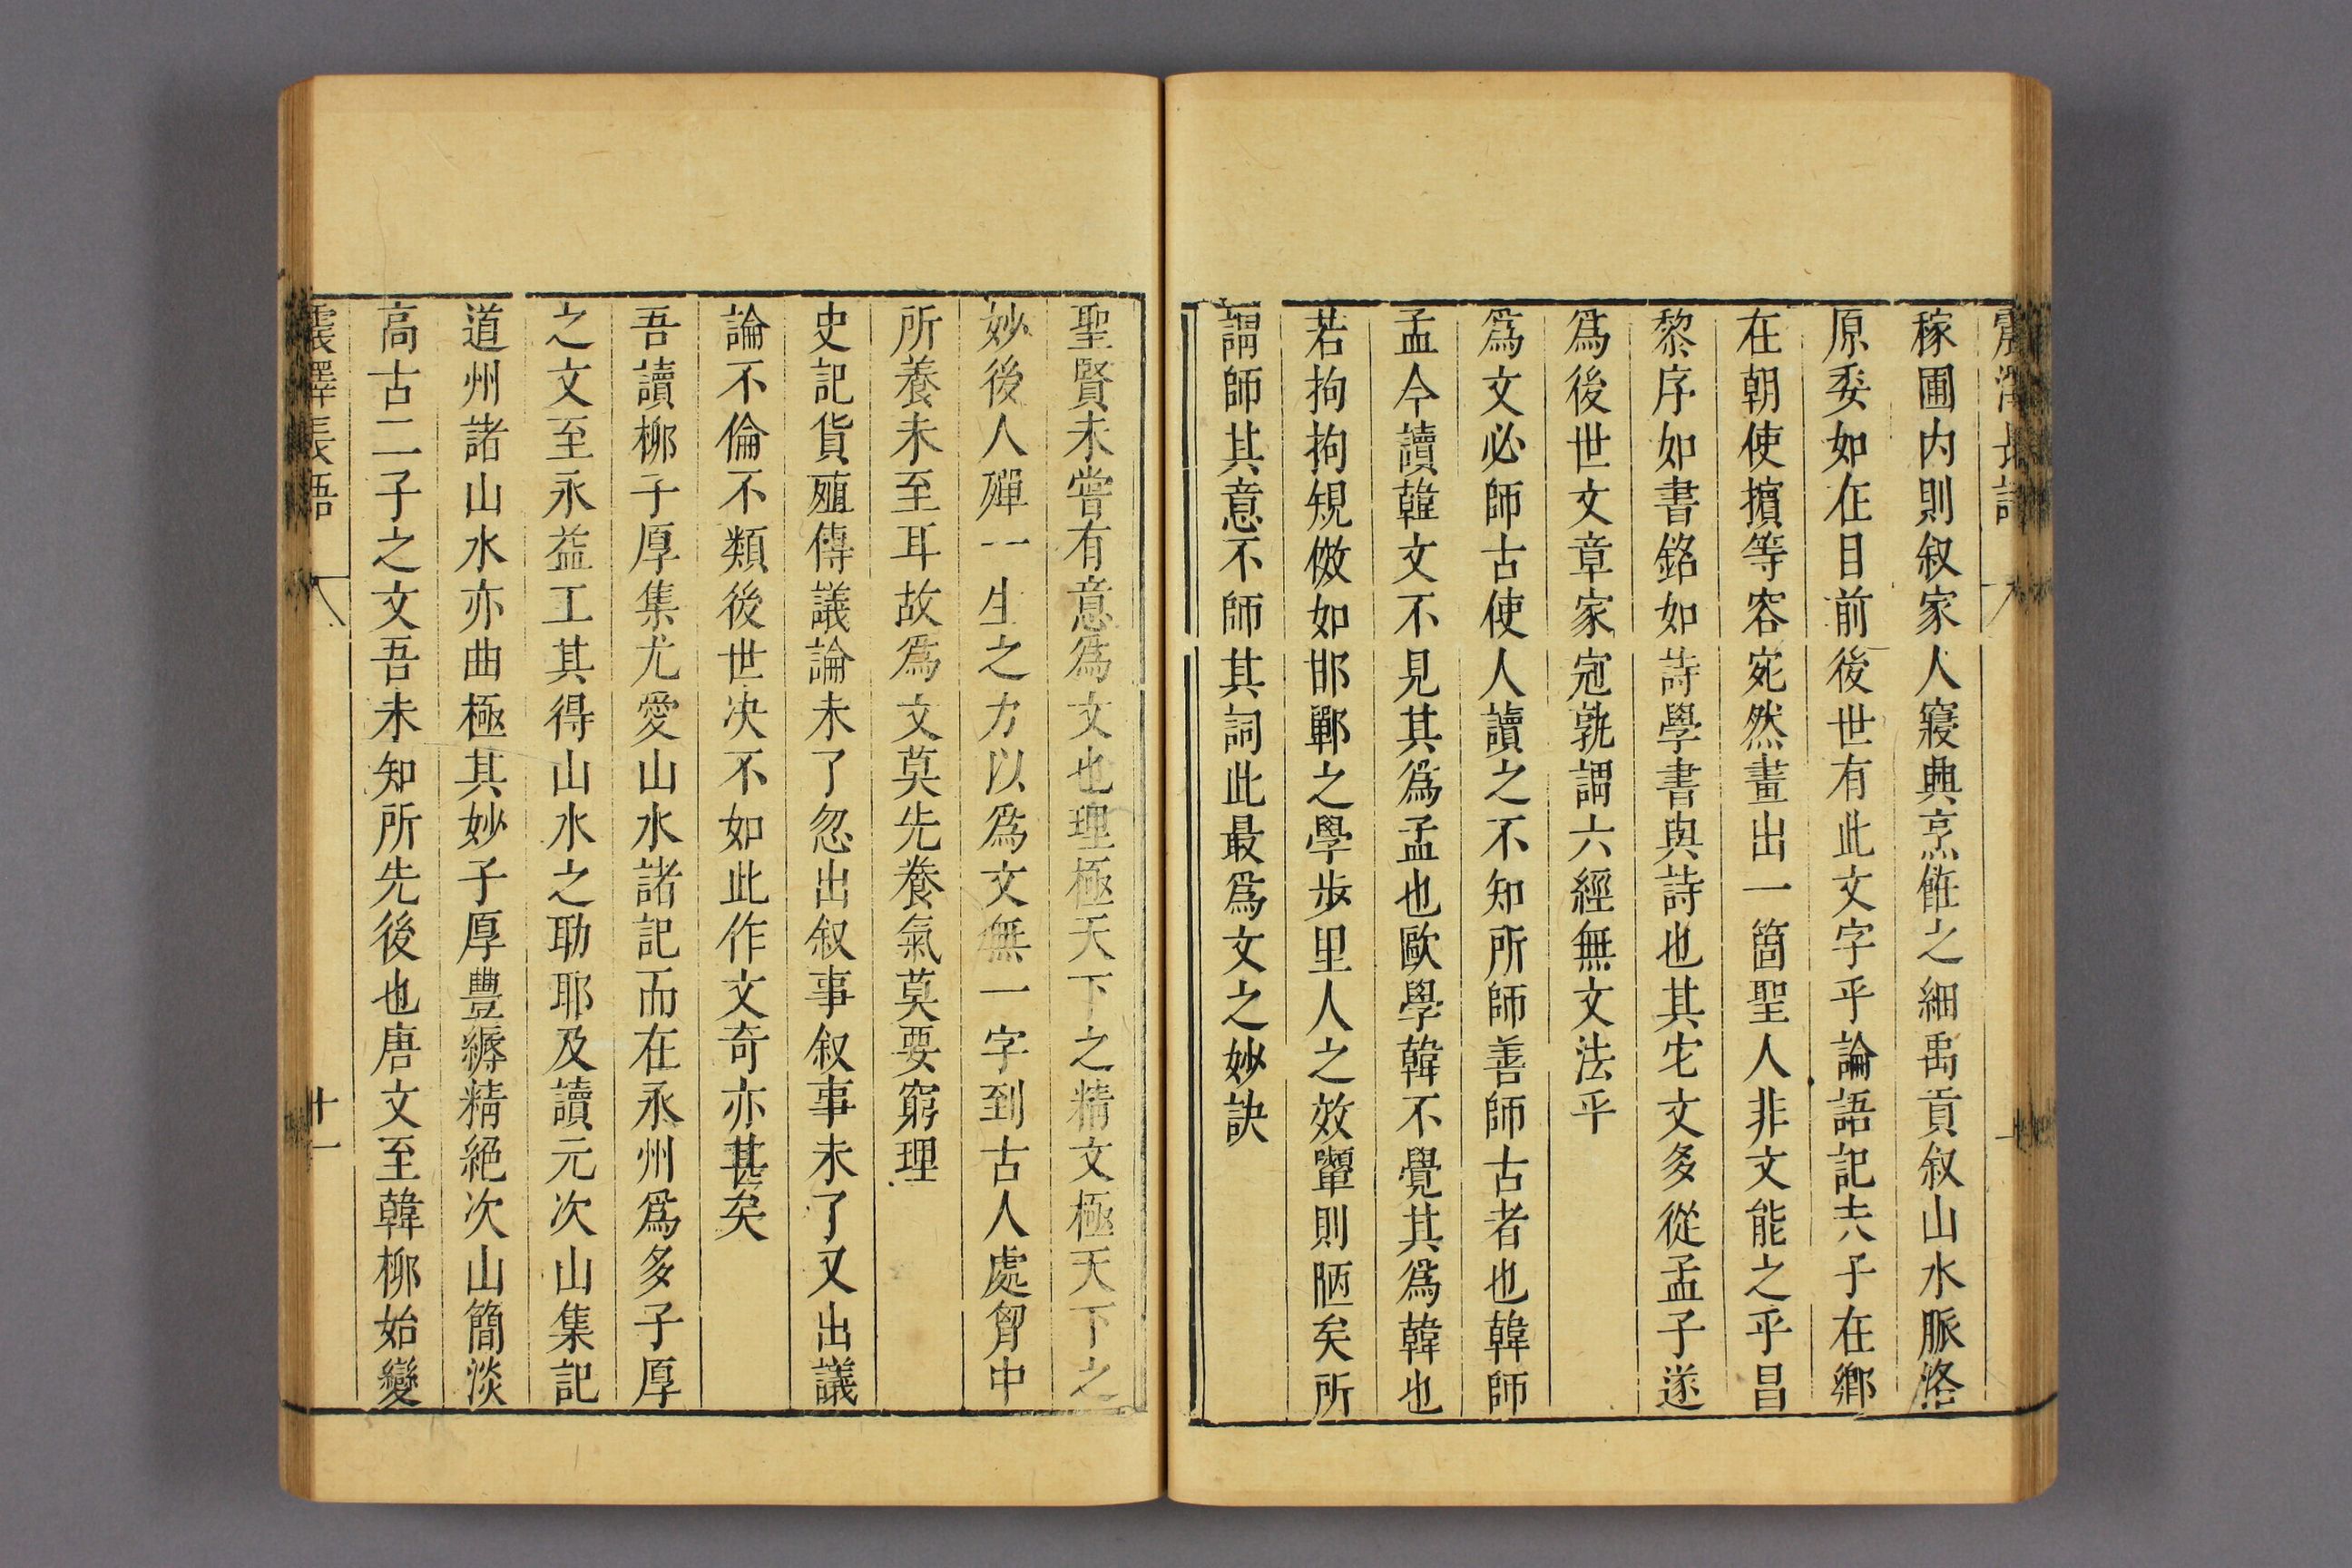 震澤長語
稼圃内則叙家人寢興烹飪之細禹貢叙山水脈絡
原委如在目前後世有此文字乎論語記夫子在鄉
在朝使擯等容宛然畫出一箇聖人非文能之乎昌
黎序如書銘如詩學書與詩也其它文多從孟子遂
爲後世文章家冠孰謂六經無文法乎
爲文必師古使人讀之不知所師善師古者也韓師
孟今讀韓文不見其爲孟也歐學韓不覺其爲韓也
若拘拘規倣如邯鄲之學步里人之效顰則陋矣所
謂師其意不師其詞此最爲文之妙訣
聖賢未嘗有意爲文也理極天下之精文極天下之
妙後人殫一生之力以爲文無一字到古人處胷中
所養未至耳故爲文莫先養氣莫要窮理
史記貨殖傳議論未了忽出叙事叙事未了又出議
論不倫不類後世決不如此作文奇亦甚矣
吾讀柳子厚集尤愛山水諸記而在永州爲多子厚
之文至永益工其得山水之助耶及讀元次山集記
道州諸山水亦曲極其妙子厚豐縟精絕次山簡淡
高古二子之文吾未知所先後也唐文至韓柳始變
震澤長語 十一